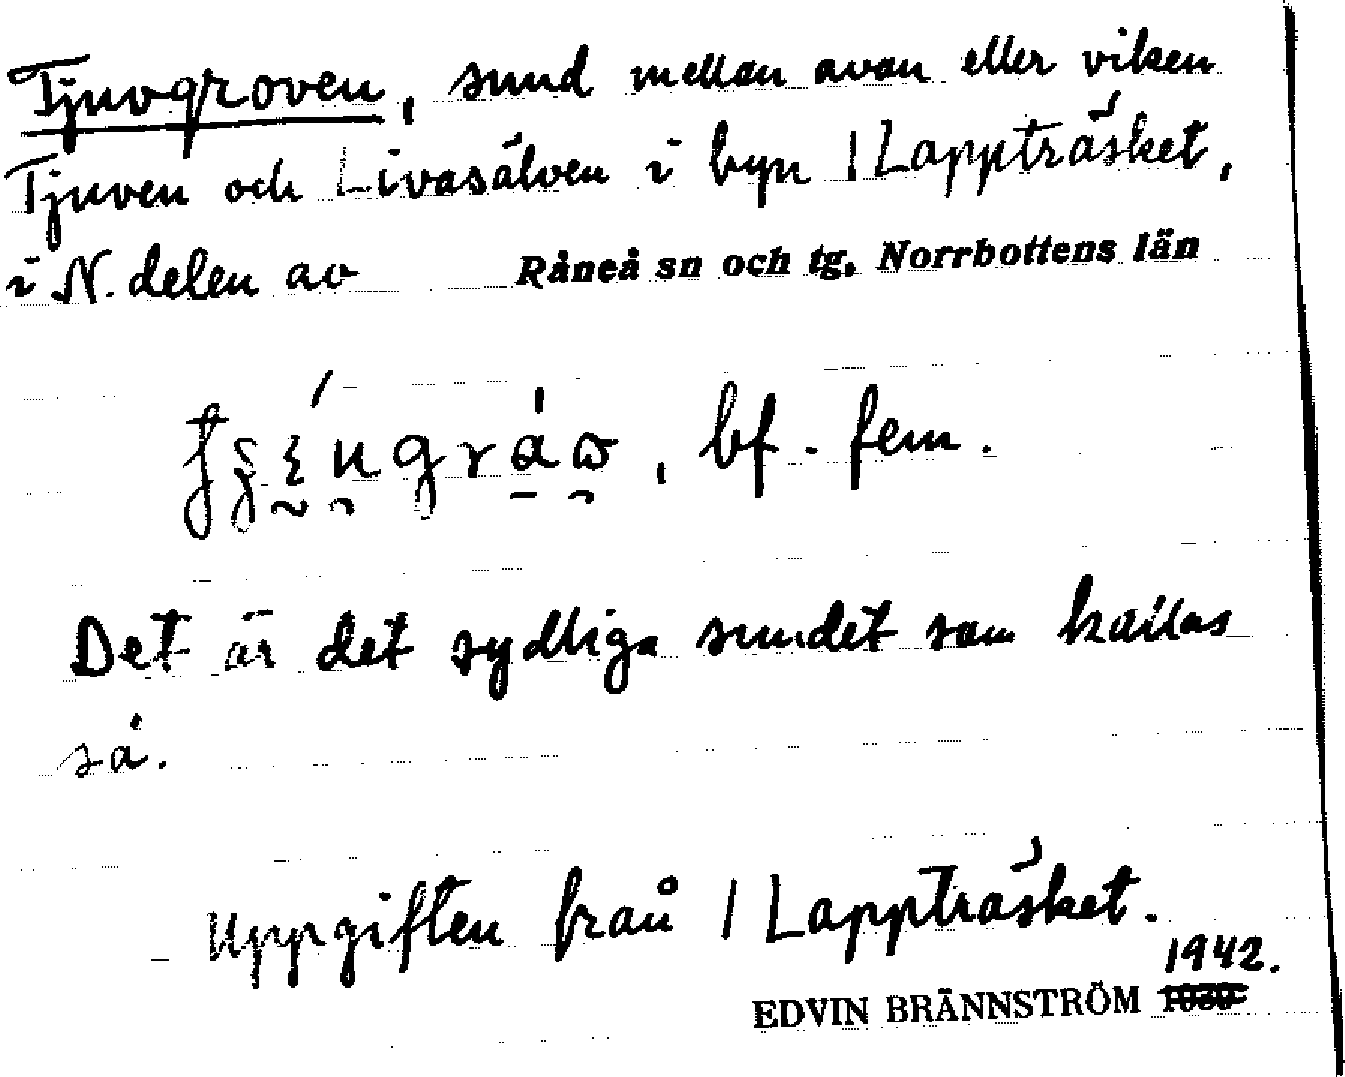 Tjuvgroven, sund mellan avan eller viken
Tjuven och Livasälven i byn / Lappträsket,
i N. delen av Råneå sn och tg. Norrbottens län
bf. fem.
Det är det sydliga sundet som kallas
så.
Uppgiften från / Lappträsket.
1942.
EDVIN BRÄNNSTRÖM 1930